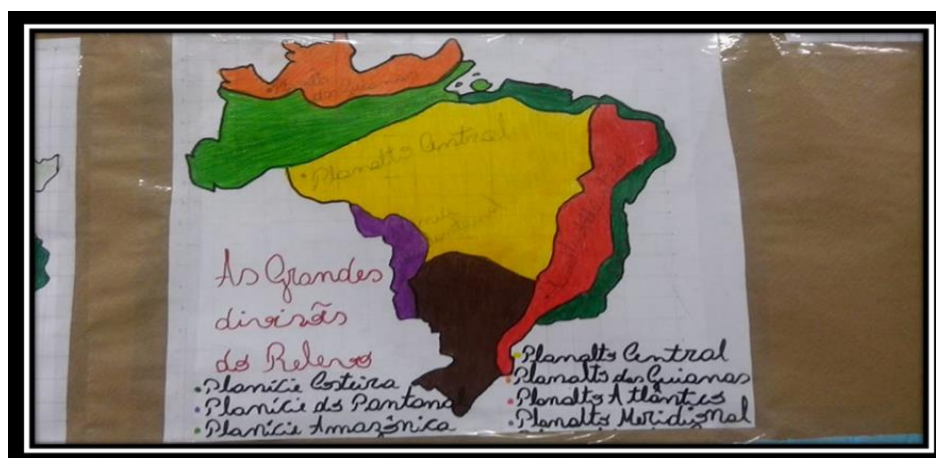 Planalto das Guianas
Planalto Central
As Grandes
divisões
do Relevo
Planície Costeira
Planície do Pantanal
Planície Amazônica
Planalto Central
Planalto das Guianas
Planalto Atlântico
Planalto Meridional